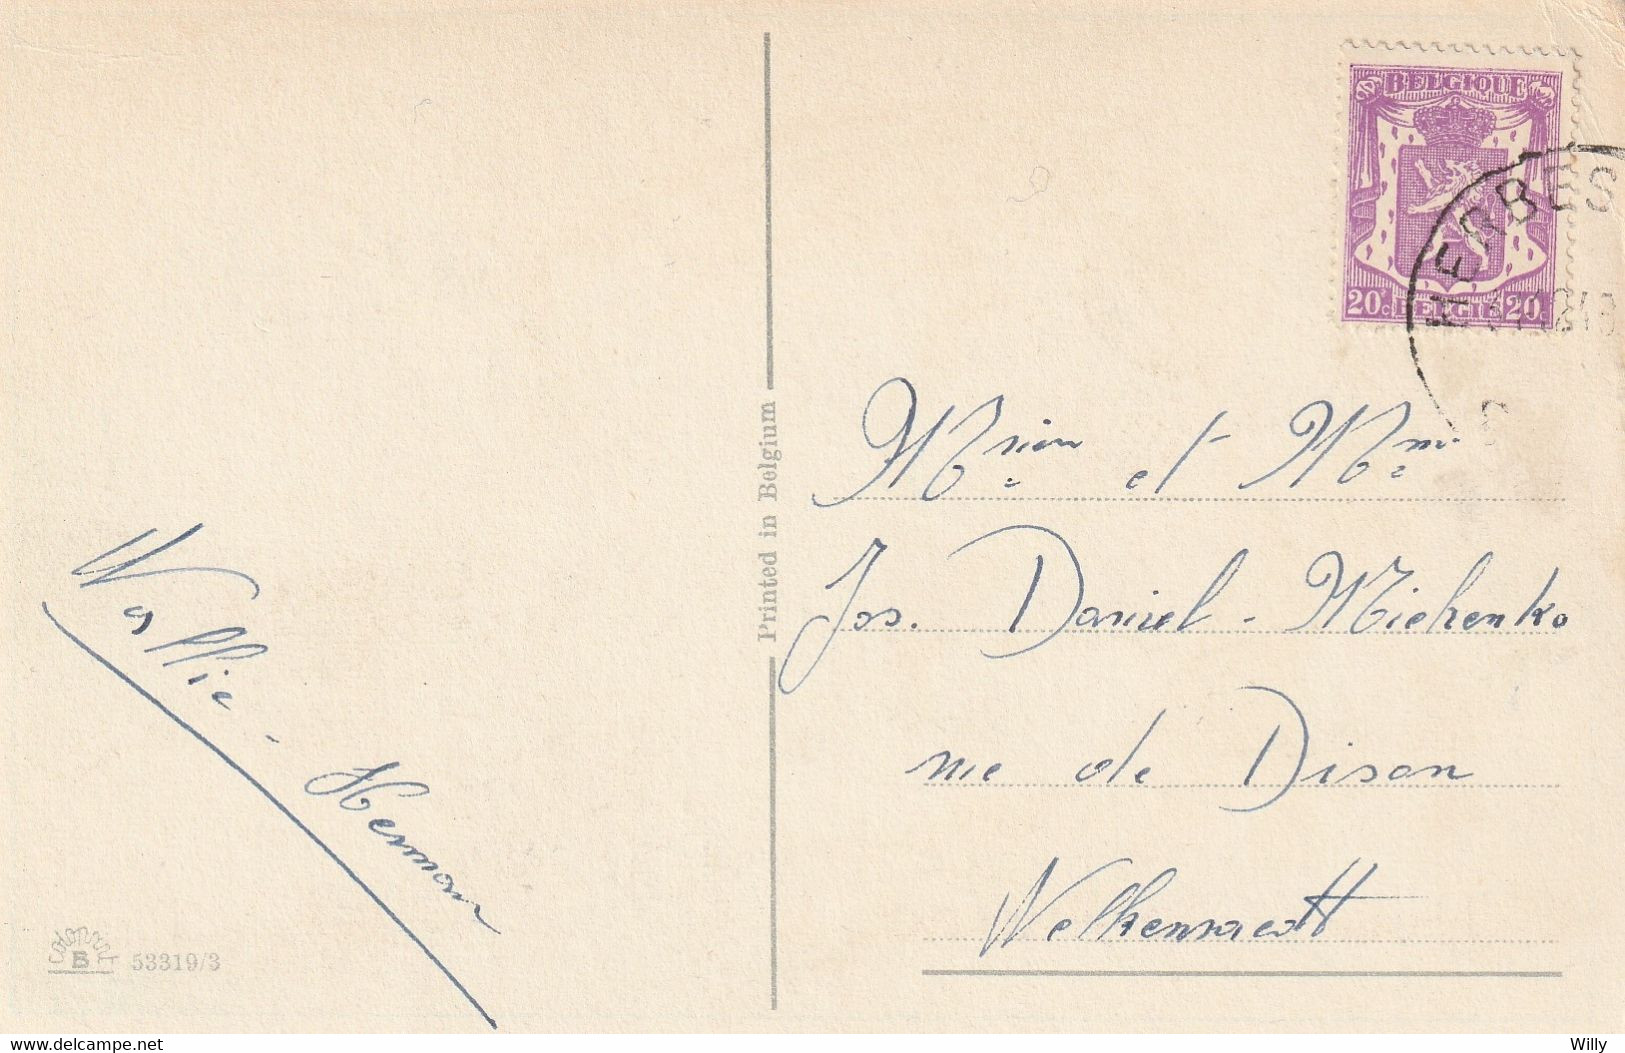 BELGIQUE
20c BELGIE 20c
HERBES
Printed in Belgium
Mrsieur et Mme
Jos. Daniel - Michenko
rue de Dison
Welkenraedt
Wallie - Herman
colorprint
B 53319/3
delcampe.net
Willy